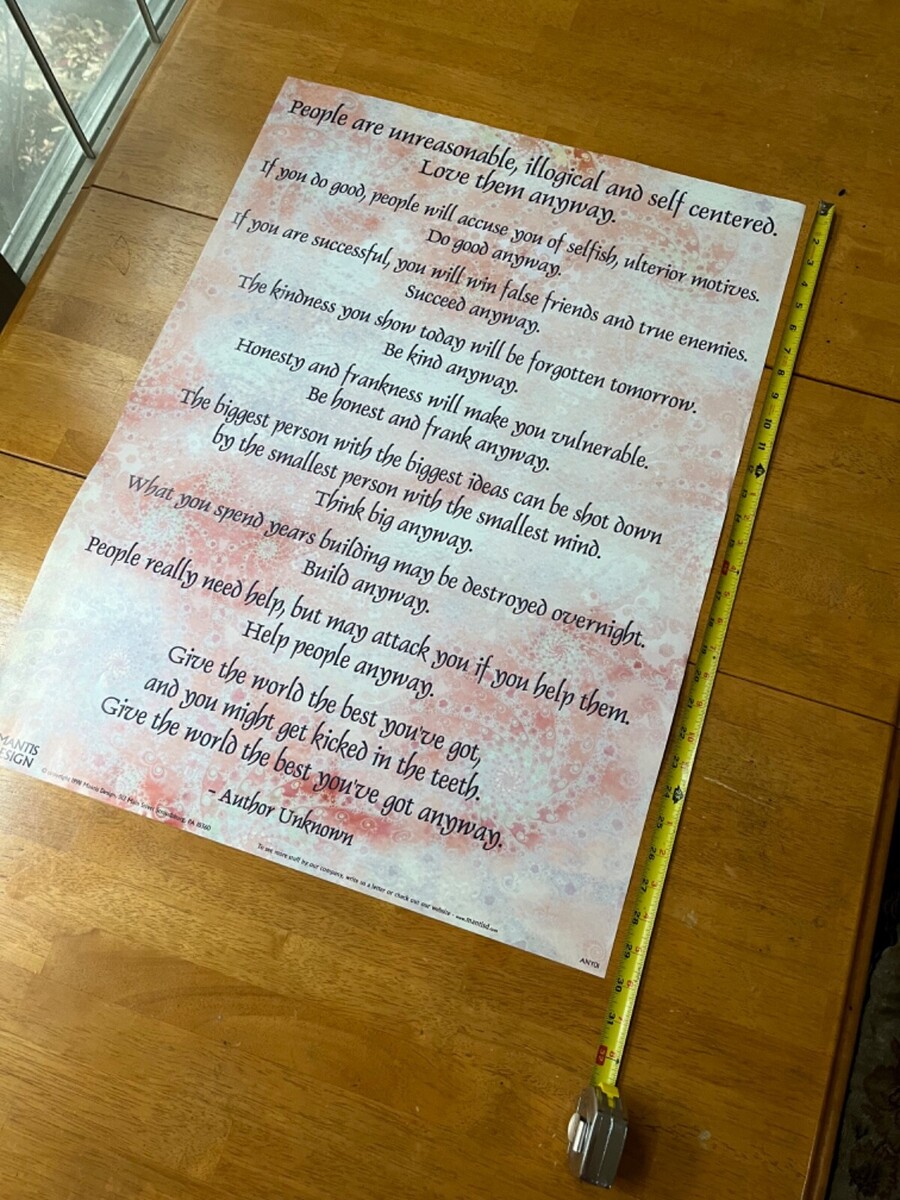 People are unreasonable, illogical and self centered.
Love them anyway.
If you do good, people will accuse you of selfish, ulterior motives.
Do good anyway.
If you are successful, you will win false friends and true enemies.
Succeed anyway.
The kindness you show today will be forgotten tomorrow.
Be kind anyway.
Honesty and frankness will make you vulnerable.
Be honest and frank anyway.
The biggest person with the biggest ideas can be shot down
by the smallest person with the smallest mind.
Think big anyway.
What you spend years building may be destroyed overnight.
Build anyway.
People really need help, but may attack you if you help them.
Help people anyway.
Give the world the best you've got,
and you might get kicked in the teeth.
Give the world the best you've got anyway.
- Author Unknown
MANTIS
DESIGN
© copyright 1998 Mantis Design, Main Street, PA 18360
To see more stuff by our company, write us a letter or check out our website - www.mantisd.com
ANY01
2
3
4
5
6
7
8
9
10
11
25
26
27
28
29
30
31